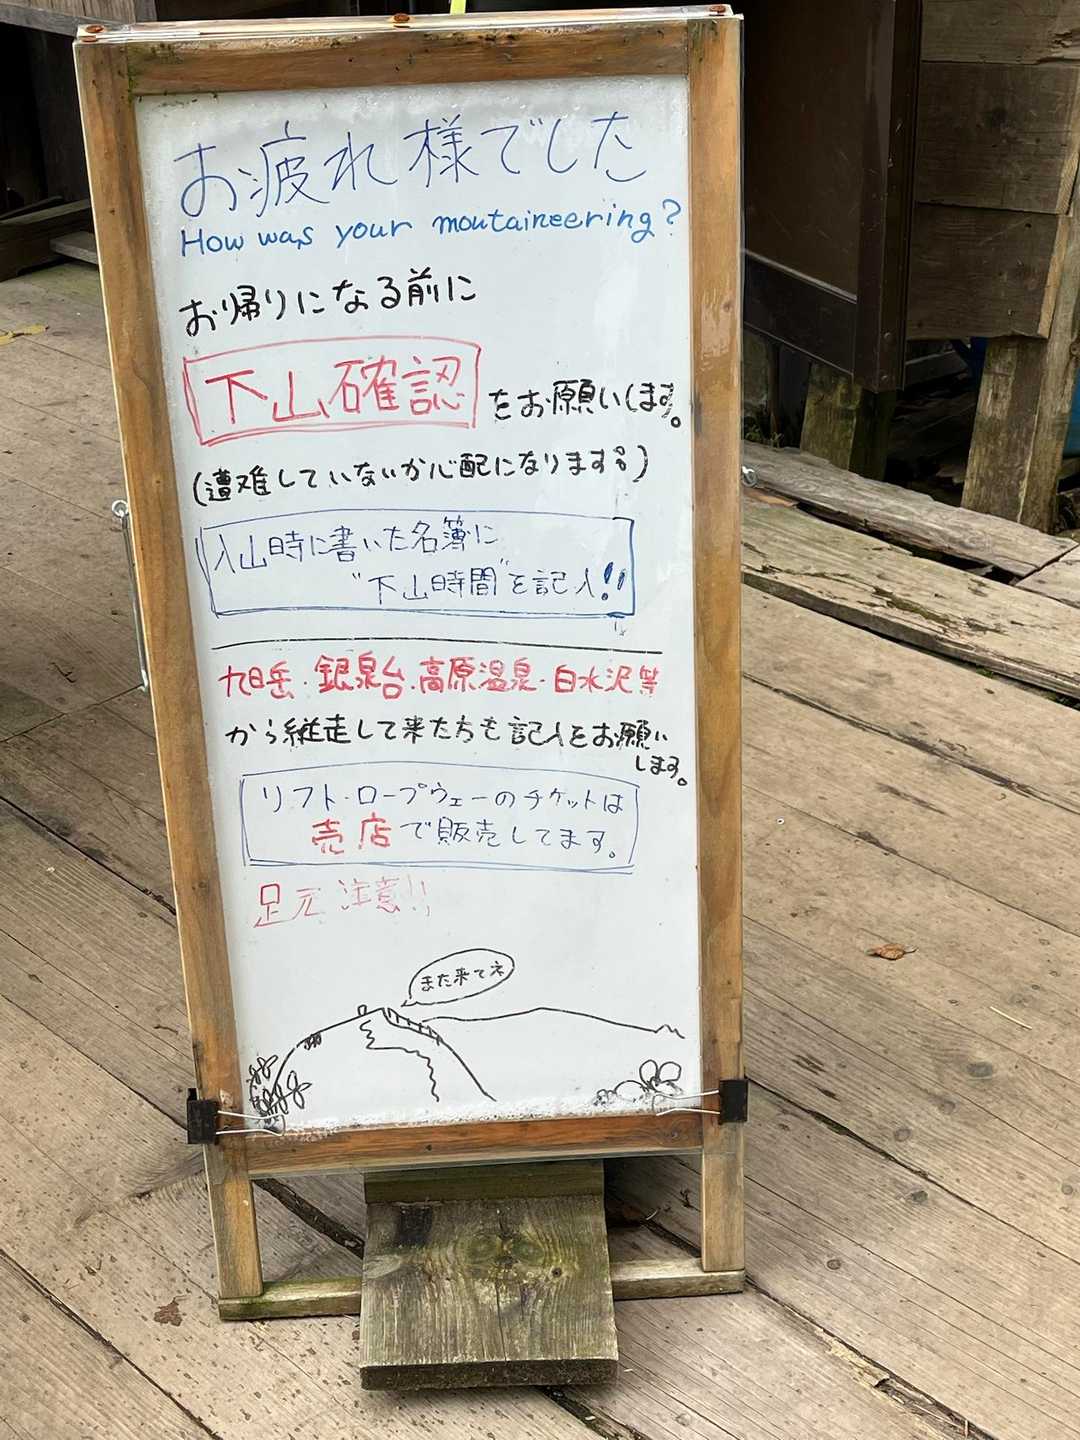 お疲れ様でした
How was your moutaineering?
お帰りになる前に
下山確認をお願いします。
(遭難していないか心配になります。)
入山時に書いた名簿に
"下山時間"を記入!!
旭岳・銀泉台・高原温泉・白水沢等
から縦走して来た方も記入をお願い
します。
リフト・ロープウェーのチケットは
売店で販売してます。
足元注意!!
また来てネ